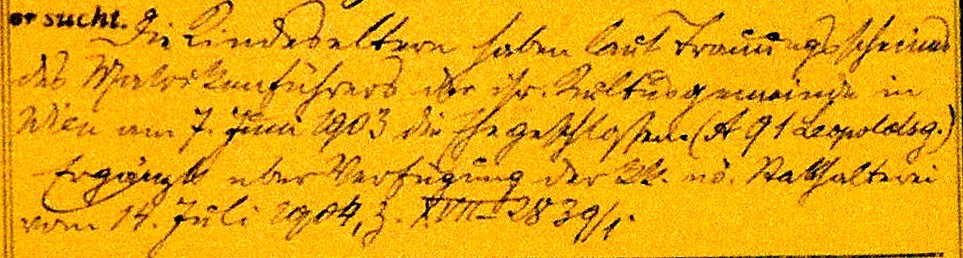 ersucht.
Die Kindeseltern haben laut Trauungsscheines
des Matrikenführers der isr. Kultusgemeinde in
Wien am 7. Juni 1903 die Ehe geschlossen. (A 91 Leopoldsg.)
Ergänzt über Verfügung der kk. nö. Statthalterei
vom 14. Juli 1904, Z. XVII-2839/1